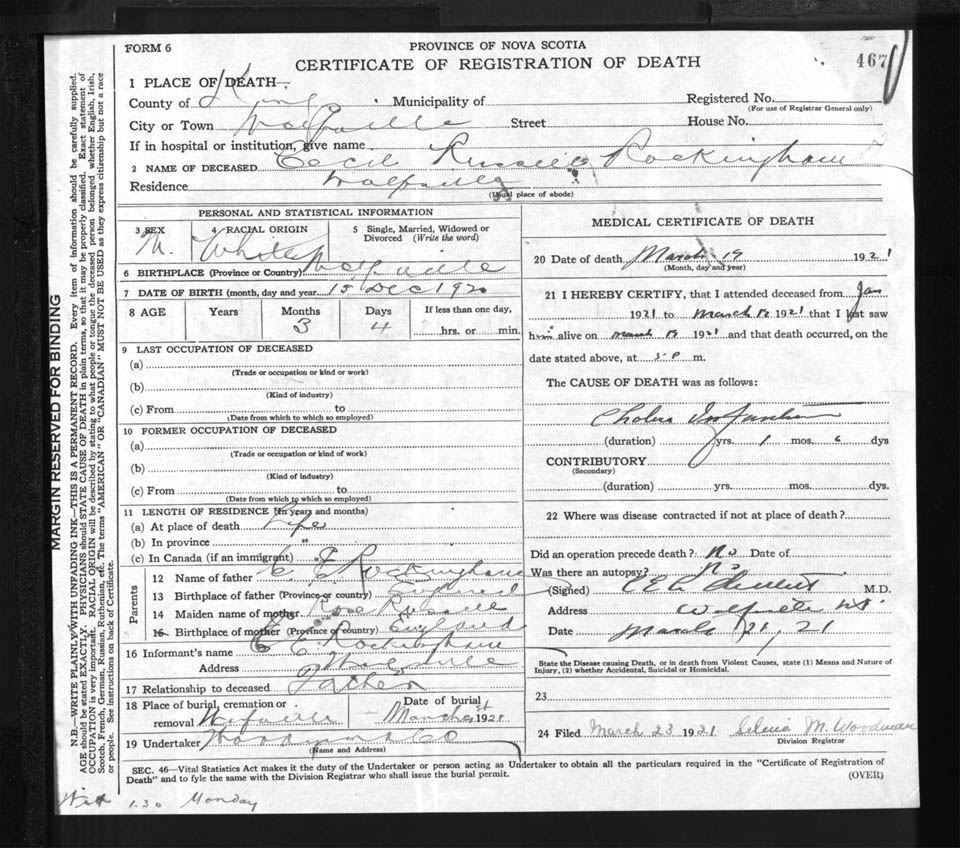 FORM 6
PROVINCE OF NOVA SCOTIA
CERTIFICATE OF REGISTRATION OF DEATH
467
1 PLACE OF DEATH
County of Kings Municipality of Registered No.
(For use of Registrar General only)
City or Town Wolfville Street House No.
If in hospital or institution, give name
2 NAME OF DECEASED Cecil Russell Rockingham
Residence Wolfville
(Usual place of abode)
PERSONAL AND STATISTICAL INFORMATION
3 SEX 4 RACIAL ORIGIN 5 Single, Married, Widowed or
Divorced (Write the word)
M. White
6 BIRTHPLACE (Province or Country) Wolfville
7 DATE OF BIRTH (month, day and year 15 Dec 1920
8 AGE Years Months Days If less than one day,
3 4 hrs. or min.
9 LAST OCCUPATION OF DECEASED
(a)
(Trade or occupation or kind or work)
(b)
(Kind of industry)
(c) From to
(Date from which to which so employed)
10 FORMER OCCUPATION OF DECEASED
(a)
(Trade or occupation or kind of work)
(b)
(Kind of industry)
(c) From to
(Date from which to which so employed)
11 LENGTH OF RESIDENCE (In years and months)
(a) At place of death Life
(b) In province "
(c) In Canada (if an immigrant)
Parents
12 Name of father C. E. Rockingham
13 Birthplace of father (Province or country) England
14 Maiden name of mother Rose Russell
15 Birthplace of mother (Province or country) England
16 Informant's name C. E. Rockingham
Address Wolfville
17 Relationship to deceased Father
18 Place of burial, cremation or Date of burial
removal Wolfville March 21st 1921
19 Undertaker
(Name and Address)
MEDICAL CERTIFICATE OF DEATH
20 Date of death March 19 1921
(Month, day and year)
21 I HEREBY CERTIFY, that I attended deceased from Jan
1921 to March 1921 that I last saw
him alive on March 1921 and that death occurred, on the
date stated above, at 5 P m.
The CAUSE OF DEATH was as follows:
Cholera Infantum
(duration) yrs. 1 mos. 6 dys
CONTRIBUTORY
(Secondary)
(duration) yrs. mos. dys.
22 Where was disease contracted if not at place of death?
Did an operation precede death? No Date of
Was there an autopsy? No
(Signed) M.D.
Address Wolfville NS.
Date March 21, 21
State the Disease causing Death, or in death from Violent Causes, state (1) Means and Nature of
Injury, (2) whether Accidental, Suicidal or Homicidal.
23
24 Filed March 23 1921 Selenia M. Woodman
Division Registrar
SEC. 46—Vital Statistics Act makes it the duty of the Undertaker or person acting as Undertaker to obtain all the particulars required in the "Certificate of Registration of
Death" and to fyle the same with the Division Registrar who shall issue the burial permit.
(OVER)
1.30 Monday
MARGIN RESERVED FOR BINDING
N.B.—WRITE PLAINLY WITH UNFADING INK—THIS IS A PERMANENT RECORD. Every item of information should be carefully supplied.
AGE should be stated EXACTLY. PHYSICIANS should STATE CAUSE OF DEATH in plain terms, so that it may be properly classified. Exact statement of
OCCUPATION is very important. RACIAL ORIGIN will be described by stating to what people or tongue the deceased person belonged, whether English, Irish,
Scotch, French, German, Russian, Ruthenian, etc. The terms "AMERICAN" OR "CANADIAN" MUST NOT BE USED as they express citizenship but not a race
or people. See instructions on back of Certificate.